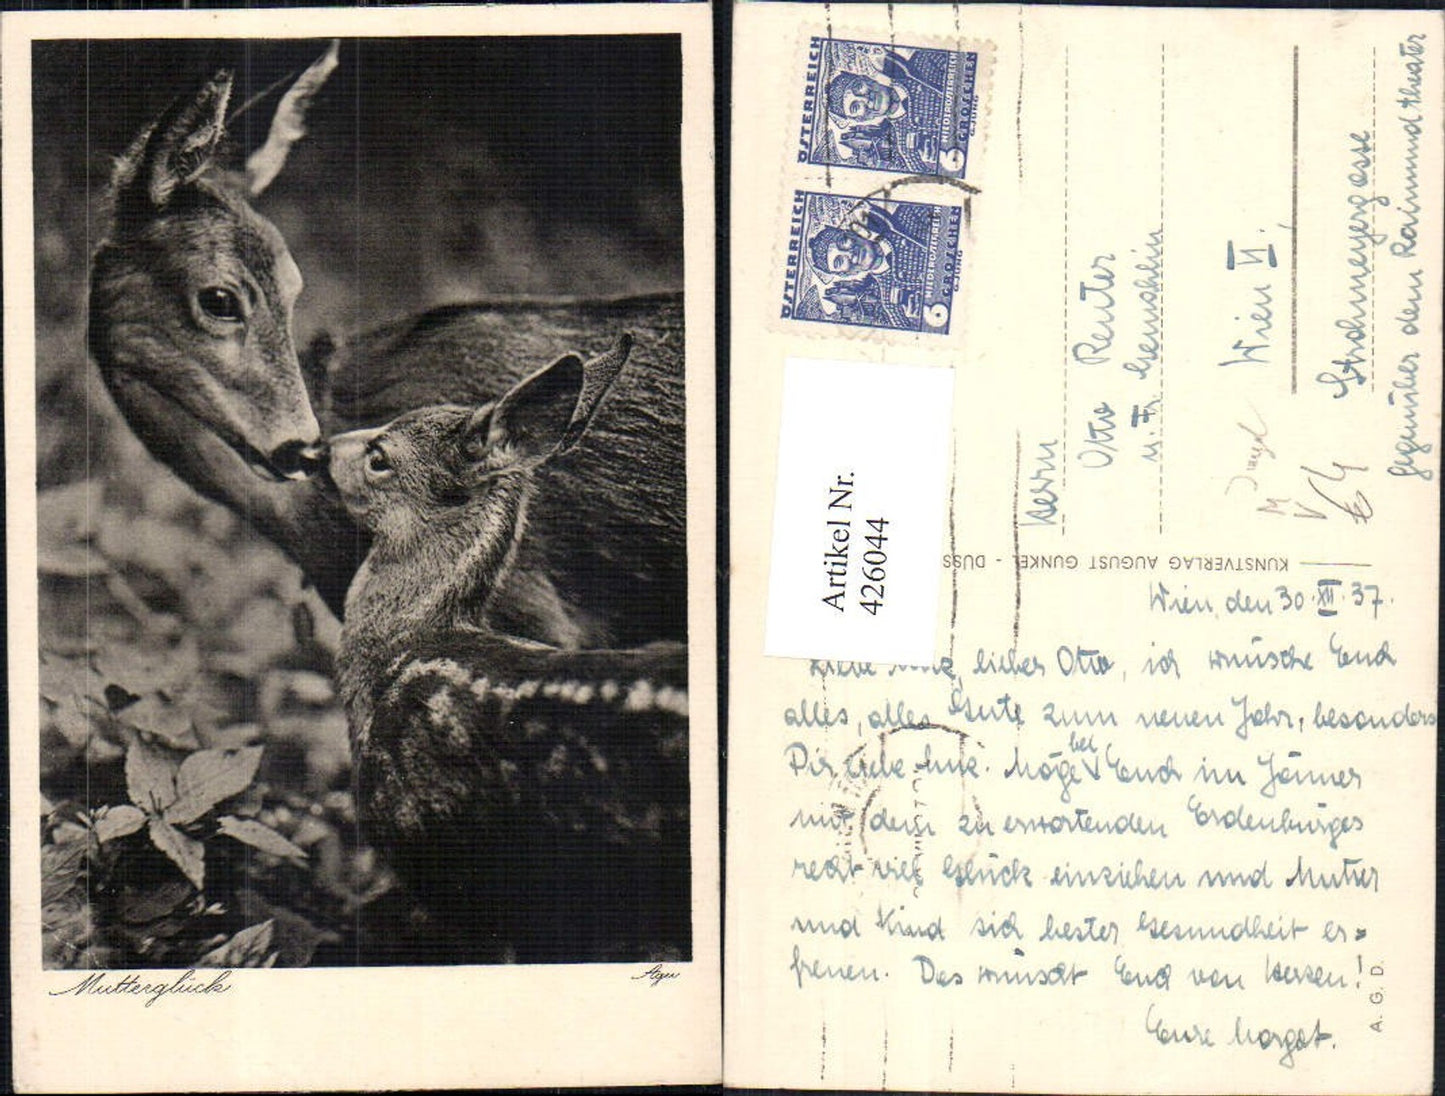 Mutterglück
Agu
ÖSTERREICH
NIEDERÖSTERREICH
6 GROSCHEN
G. JUNG
ÖSTERREICH
NIEDERÖSTERREICH
6 GROSCHEN
G. JUNG
Artikel Nr.
426044
Herrn
Otto Reuter
u. Fr. Gemahlin
Wien VI.
Strohmeyergasse
gegenüber dem Raimundtheater
KUNSTVERLAG AUGUST GUNKEL - DÜSS
A. G. D.
Wien, den 30. XII. 37.
lieber Otto, ich wünsche Euch
alles, alles Gute zum neuen Jahr, besonders
Dir liebe Möge bei Euch im Jänner
mit dem zu erwartenden Erdenbürger
recht viel Glück einziehen und Mutter
und Kind sich bester Gesundheit er=
freuen. Das wünscht Euch von Herzen!
Eure Margot.